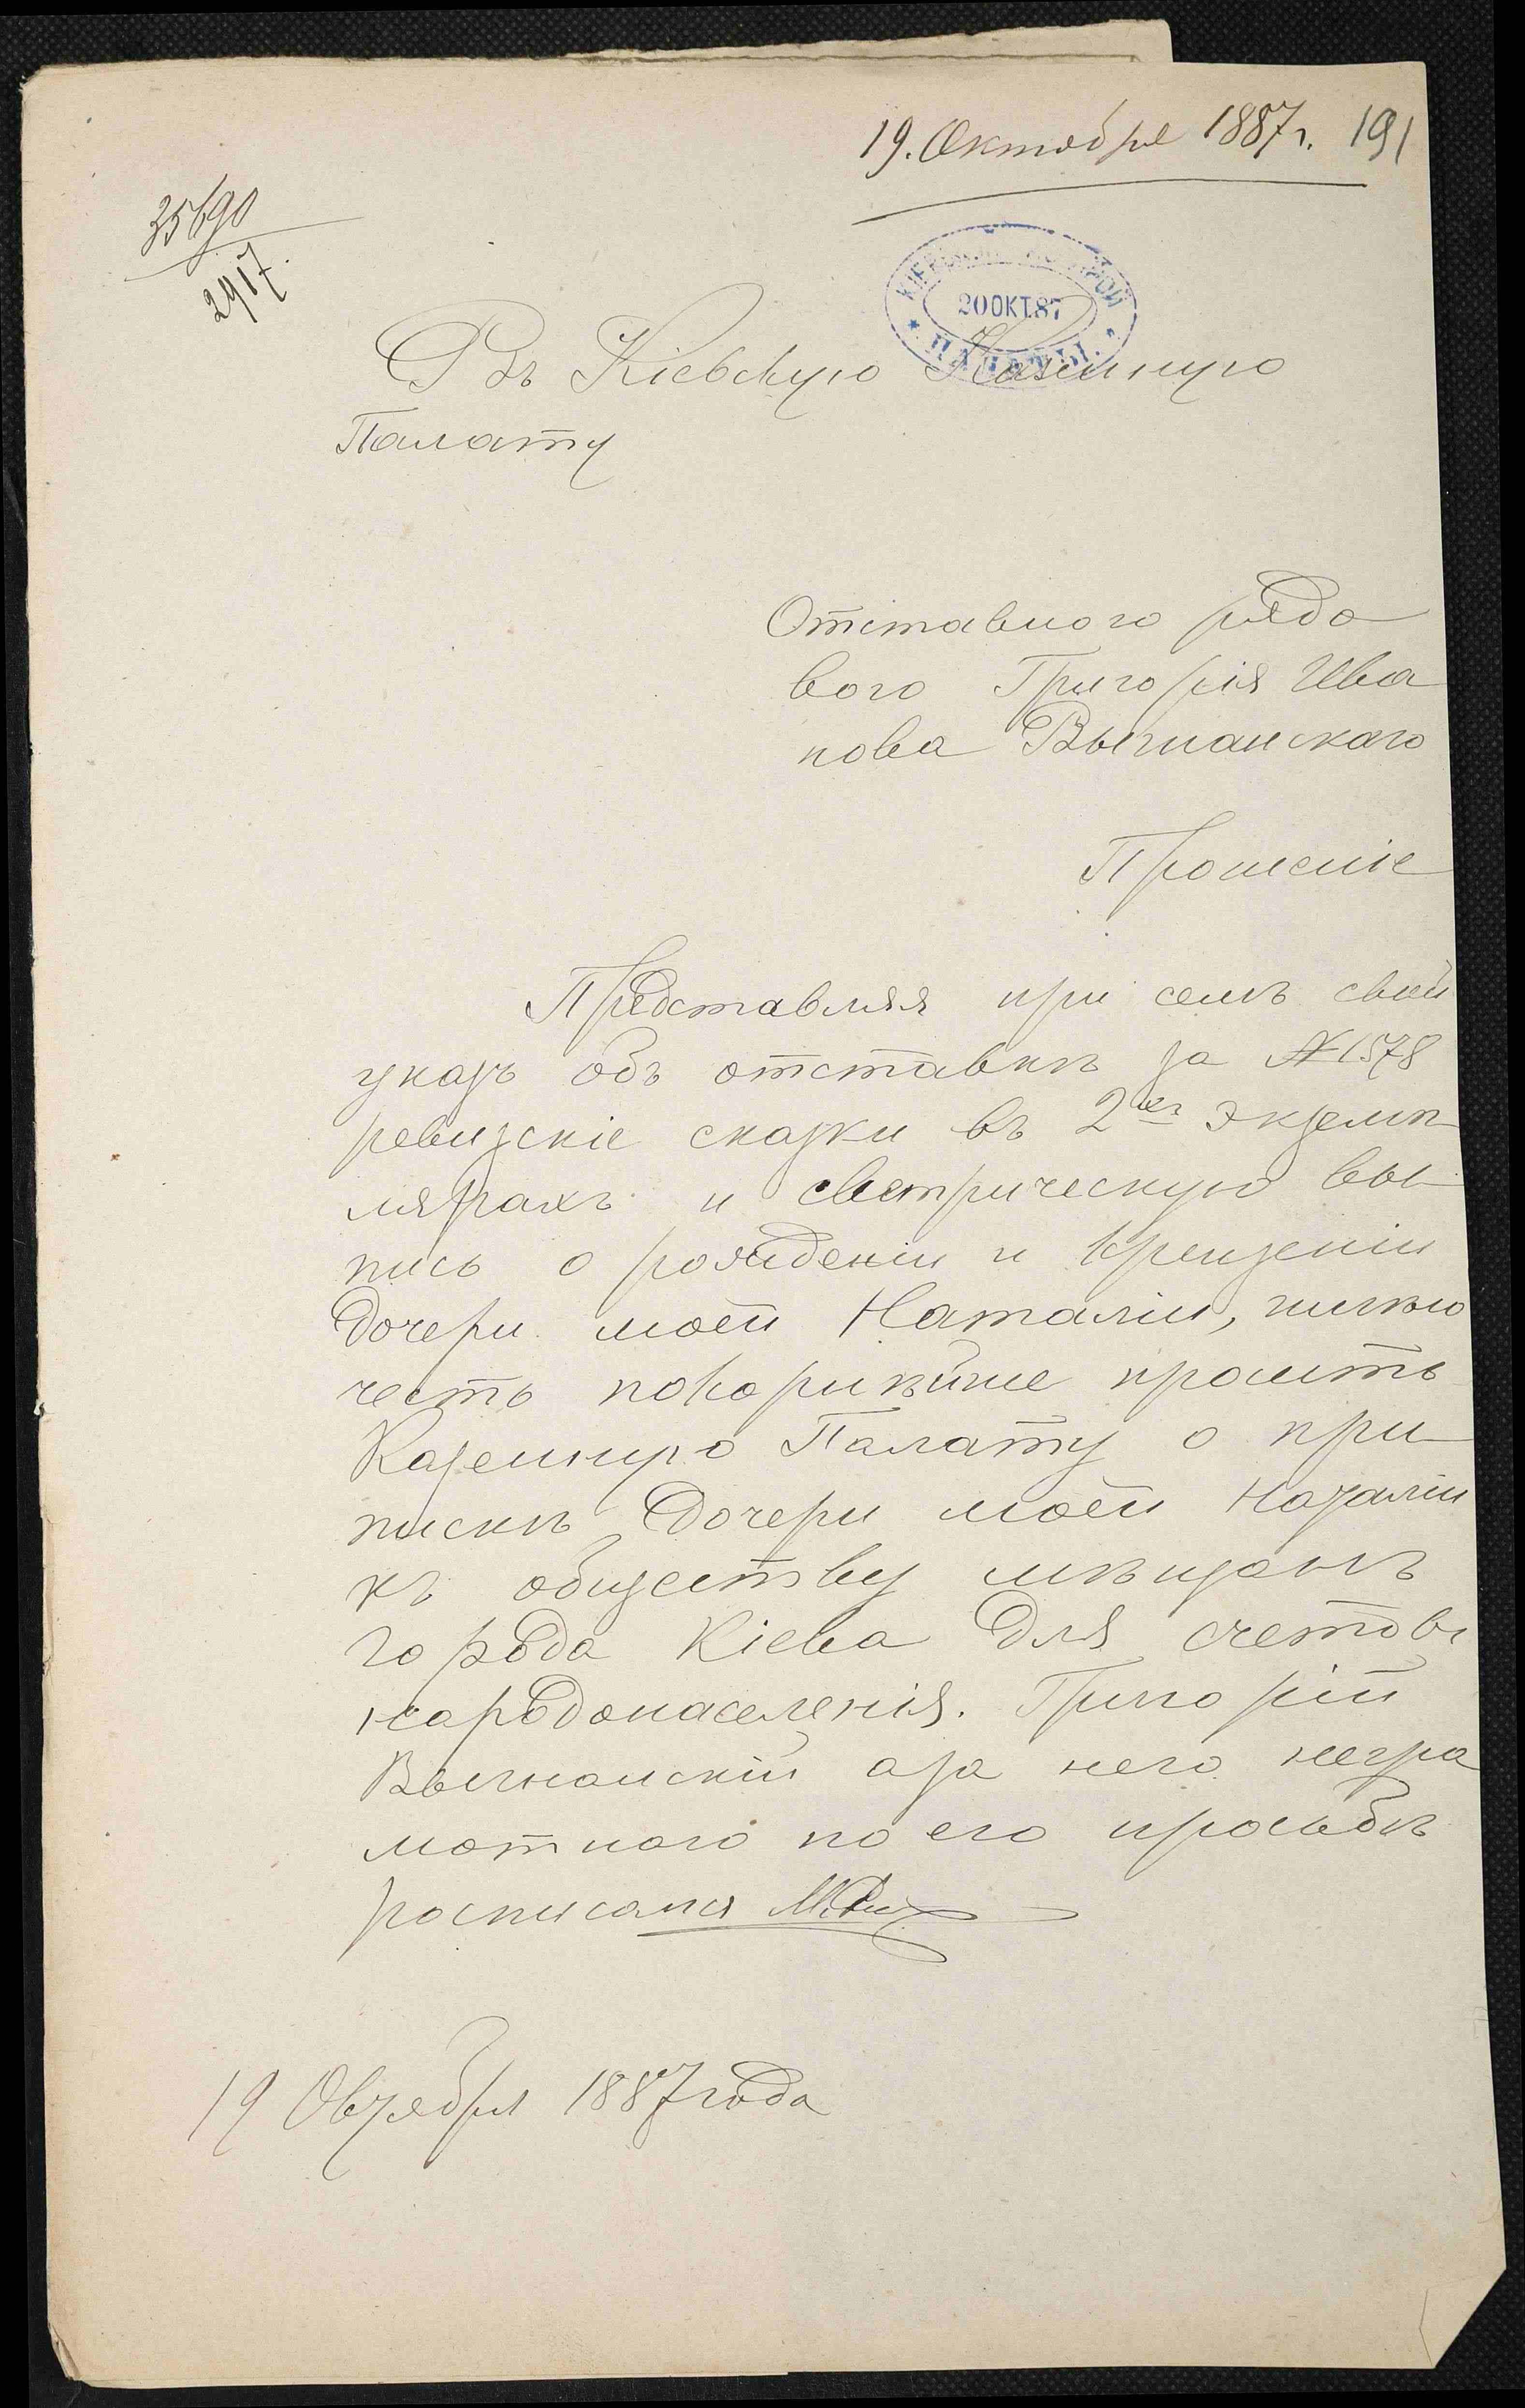 19. Октября 1887 г. 191
35690
2917.
20 ОКТ. 87
ПАЛАТЫ.
Въ Кіевскую Казенную
Палату
Отставного рядо
вого Григорія Ива
нова Выгнанскаго
Прошеніе
Представляя при семъ свой
указъ объ отставкѣ за № 1578
ревизскіе сказки въ 2хъ экземп
лярахъ и метрическую вы
пись о рожденіи и крещеніи
дочери моей Наталіи, имѣю
честь покорнѣйше просить
Казенную Палату о при
пискѣ дочери моей Наталіи
къ обществу мѣщанъ
города Кіева для счетовъ
народонаселенія. Григорій
Выгнанскій а за него негра
мотного по его просьбѣ
росписался
19 Октября 1887 года